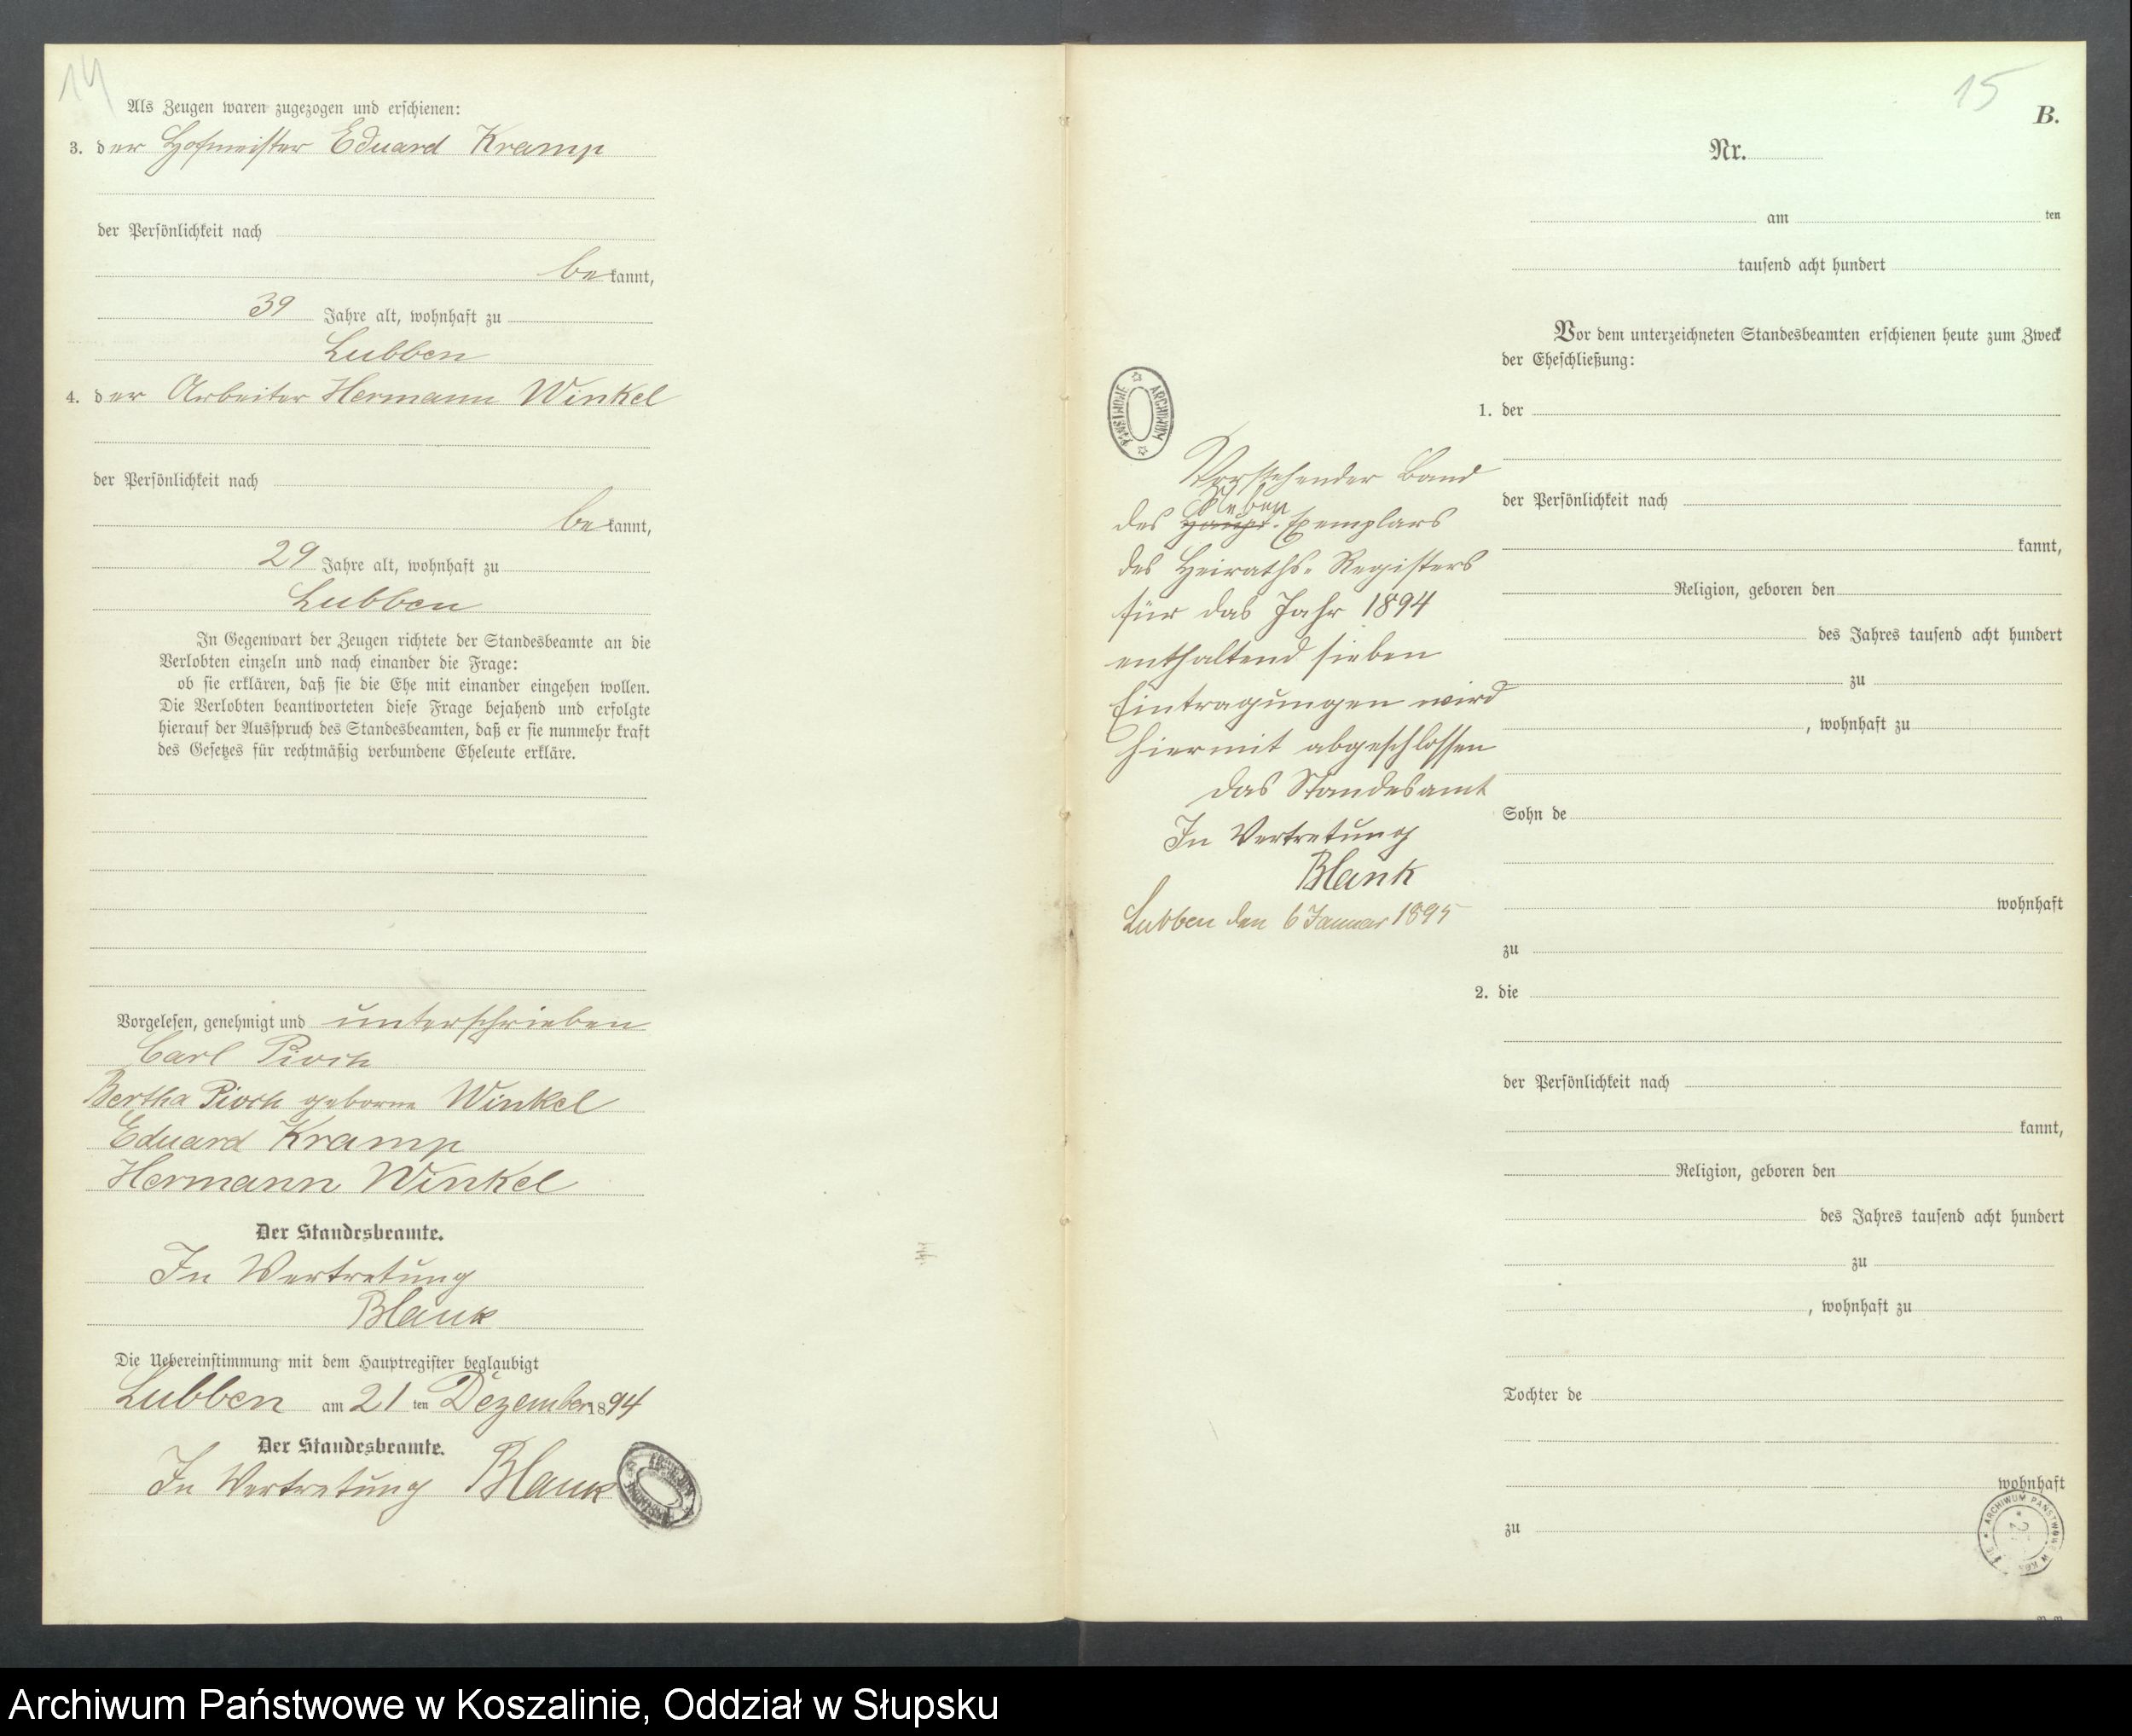 14
Als Zeugen waren zugezogen und erschienen:
3. der Hofmeister Eduard Kramp
der Persönlichkeit nach
be kannt,
39 Jahre alt, wohnhaft zu
Lubben
4. der Arbeiter Hermann Winkel
der Persönlichkeit nach
be kannt,
29 Jahre alt, wohnhaft zu
Lubben
In Gegenwart der Zeugen richtete der Standesbeamte an die
Verlobten einzeln und nach einander die Frage:
ob sie erklären, daß sie die Ehe mit einander eingehen wollen.
Die Verlobten beantworteten diese Frage bejahend und erfolgte
hierauf der Ausspruch des Standesbeamten, daß er sie nunmehr kraft
des Gesetzes für rechtmäßig verbundene Eheleute erkläre.
Vorgelesen, genehmigt und unterschrieben
Carl Pioch
Bertha Pioch geborne Winkel
Eduard Kramp
Hermann Winkel
Der Standesbeamte.
In Vertretung
Blank
Die Uebereinstimmung mit dem Hauptregister beglaubigt
Lubben am 21 ten Dezember 1894
Der Standesbeamte.
In Vertretung Blank
15
B.
Nr.
am ten
tausend acht hundert
Vor dem unterzeichneten Standesbeamten erschienen heute zum Zweck
der Eheschließung:
1. der
der Persönlichkeit nach
kannt,
Religion, geboren den
des Jahres tausend acht hundert
zu
, wohnhaft zu
Sohn de
wohnhaft
zu
2. die
der Persönlichkeit nach
kannt,
Religion, geboren den
des Jahres tausend acht hundert
zu
, wohnhaft zu
Tochter de
wohnhaft
zu
ARCHIWUM PAŃSTWOWE
Vorstehender Band
Neben
des Haupt-Exemplars
des Heiraths-Registers
für das Jahr 1894
enthaltend sieben
Eintragungen wird
hiermit abgeschlossen
Das Standesamt
In Vertretung
Blank
Lubben den 6 Januar 1895
ARCHIWUM PAŃSTWOWE W
Archiwum Państwowe w Koszalinie, Oddział w Słupsku